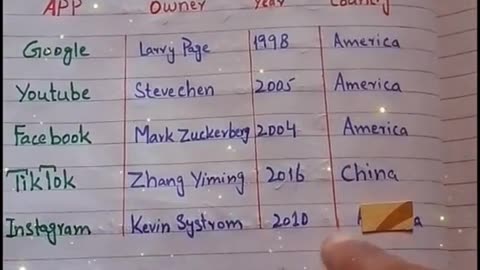 APP Owner Year Country
Google Larry Page 1998 America
Youtube Stevechen 2005 America
Facebook Mark Zuckerberg 2004 America
TikTok Zhang Yiming 2016 China
Instagram Kevin Systrom 2010